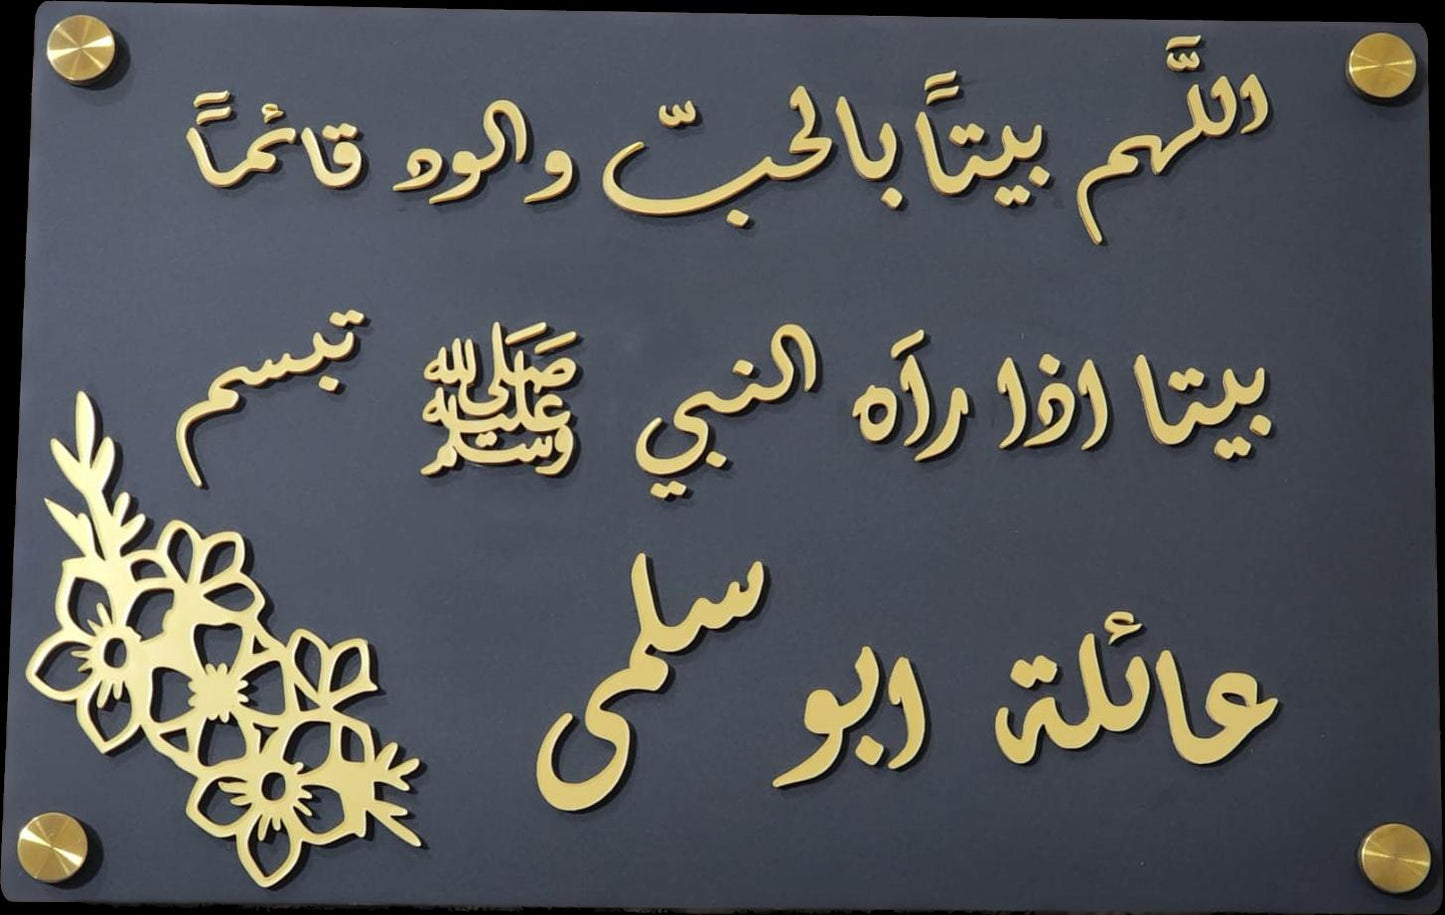 اللَّهم بيتاً بالحبّ والود قائماً
بيتا اذا رآه النبي ﷺ تبسم
عائلة ابو سلمى